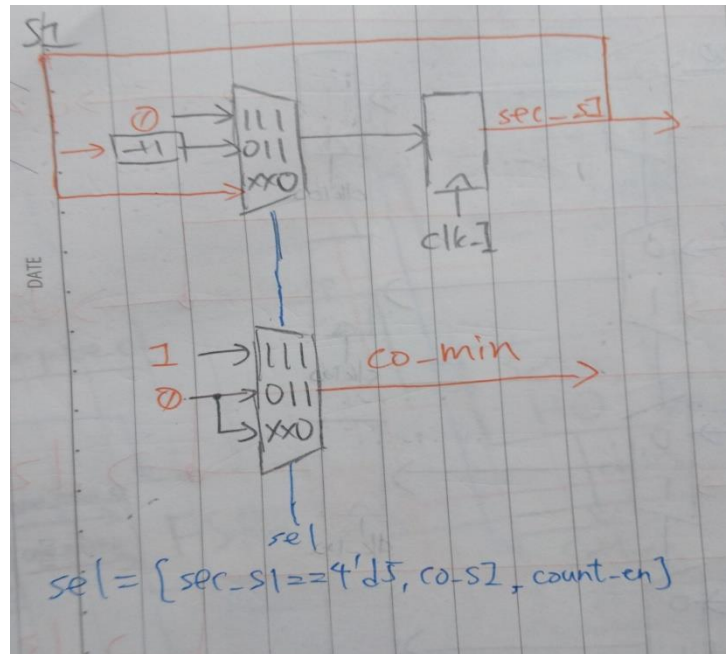 S1
0
111
+1
011
xx0
sec_s1
clk_1
DATE
1
111
co_min
0
011
xx0
sel
sel = [sec_s1==4'd5, co_s1, count_en]